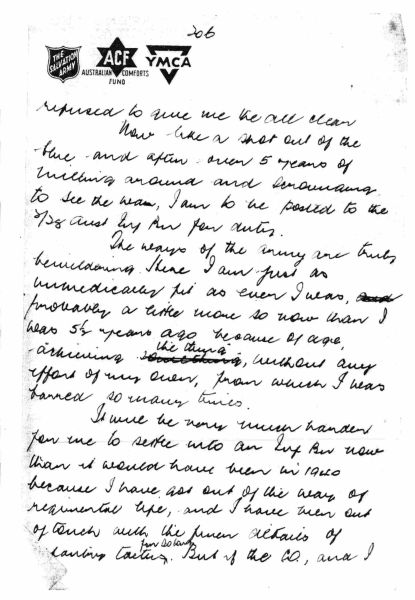 206
THE SALVATION ARMY
ACF
AUSTRALIAN COMFORTS FUND
YMCA
refused to give me the all clear
Now like a shot out of the
blue and after over 5 years of
milling around and scrounging
to see the war, I am to be posted to the
2/28 Aust Inf Bn for duty.
The ways of the army are truly
bewildering. Here I am just as
medically fit as ever I was,
probably a little more so now than I
was 5½ years ago because of age,
achieving the thing, without any
effort of my own, from which I was
barred so many times.
It will be very much harder
for me to settle into an Inf Bn now
than it would have been in 1940
because I have got out of the way of
regimental life, and I have been out
of touch with the finer details of
tactics. But if the CO, and I